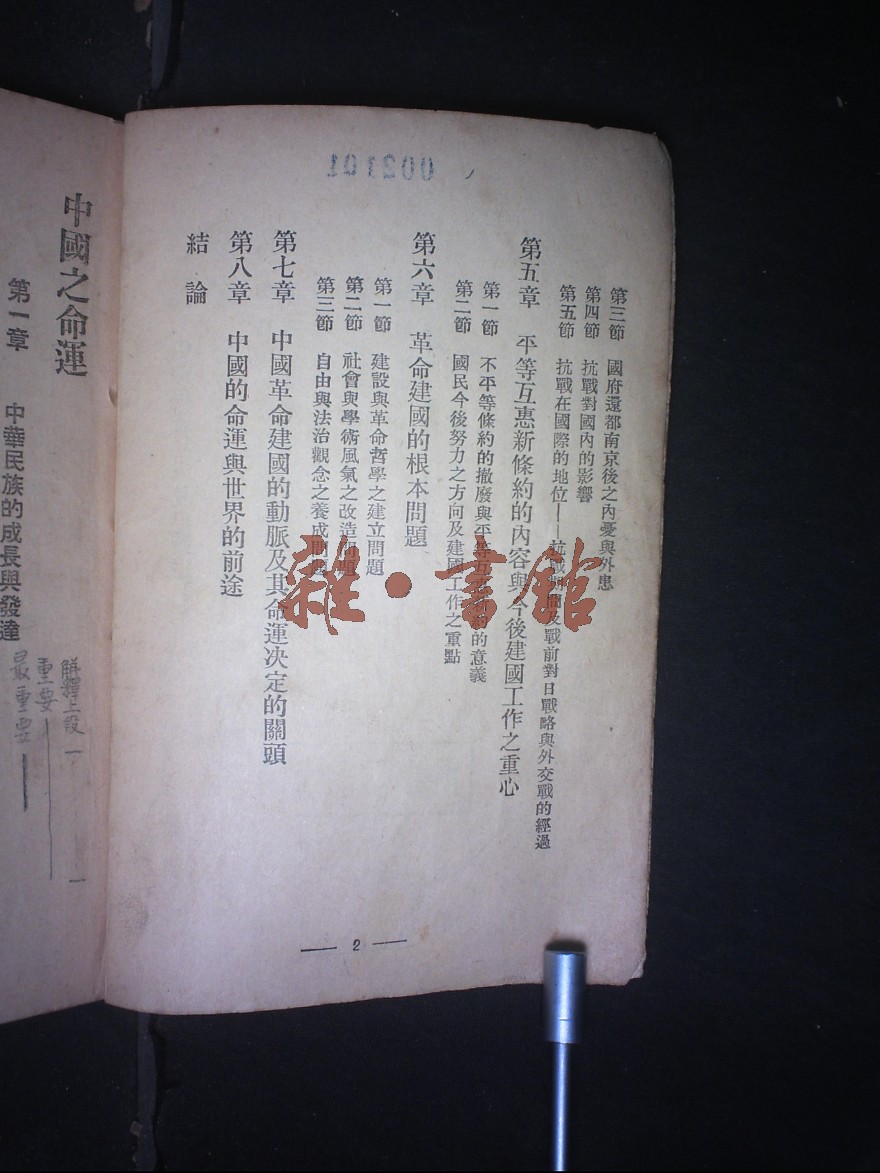 第三節　國府還都南京後之內憂與外患
第四節　抗戰對國內的影響
第五節　抗戰在國際的地位——抗戰期間及戰前對日戰略與外交戰的經過
第五章　平等互惠新條約的內容與今後建國工作之重心
第一節　不平等條約的撤廢與平等互惠新約的意義
第二節　國民今後努力之方向及建國工作之重點
第六章　革命建國的根本問題
第一節　建設與革命哲學之建立問題
第二節　社會與學術風氣之改造問題
第三節　自由與法治觀念之養成問題
第七章　中國革命建國的動脈及其命運決定的關頭
第八章　中國的命運與世界的前途
結論
— 2 —
002101
雜·書館
中國之命運
第一章　中華民族的成長與發達
解釋上段
重要
最重要